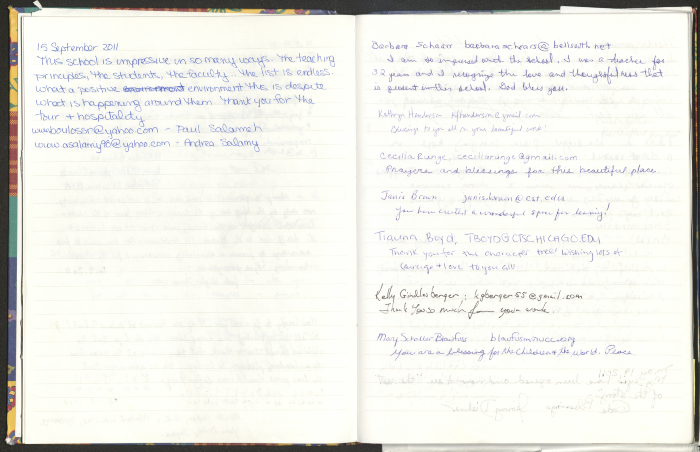 15 September 2011
This school is impressive in so many ways. The teaching
principles, the students, the faculty. The list is endless.
What a positive environment this is despite
what is happening around them. Thank you for the
tour + hospitality
www.boulosson@yahoo.com - Paul Salameh
www.asalamy90@yahoo.com - Andrea Salamy
Barbara Schaar barbaraschears@bellsouth.net
I am so impressed and the school, I was a teacher for
32 year and I recognize the love and thoughtfulness that
is present in this school. God bless you.
Kathryn Henderson
Blessings to you all in your beautiful work
Cecilia Runge, ceciliarunge@gmail.com
Prayers and blessings for this beautiful place
Janis Brown janis.brown@cst.edu
You have created a wonderful space for learning!
Tiauna Boyd, TBOYD@CTSCHICAGO.EDU
Thank you for this character tree! Wishing lots of
courage + love to you all
Kelly Ginklesberger, kgberger55@gmail.com
Thank You so much for your work.
Mary Schaller Blaufuss blaufusm@ucc.org
You are a blessing for the Children & the world. Peace